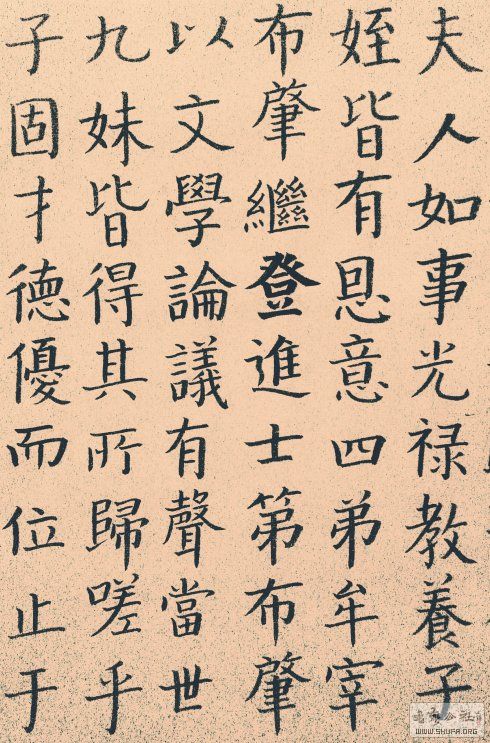 夫人如事光禄教養子
姪皆有恩意四弟牟宰
布肇繼登進士第布肇
以文學論議有聲當世
九妹皆得其所歸嗟乎
子固才德優而位止于
WWW.SHUFA.ORG